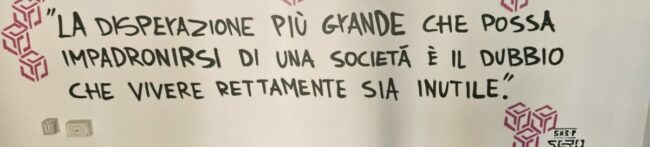 "LA DISPERAZIONE PIÙ GRANDE CHE POSSA
IMPADRONIRSI DI UNA SOCIETÁ È IL DUBBIO
CHE VIVERE RETTAMENTE SIA INUTILE."